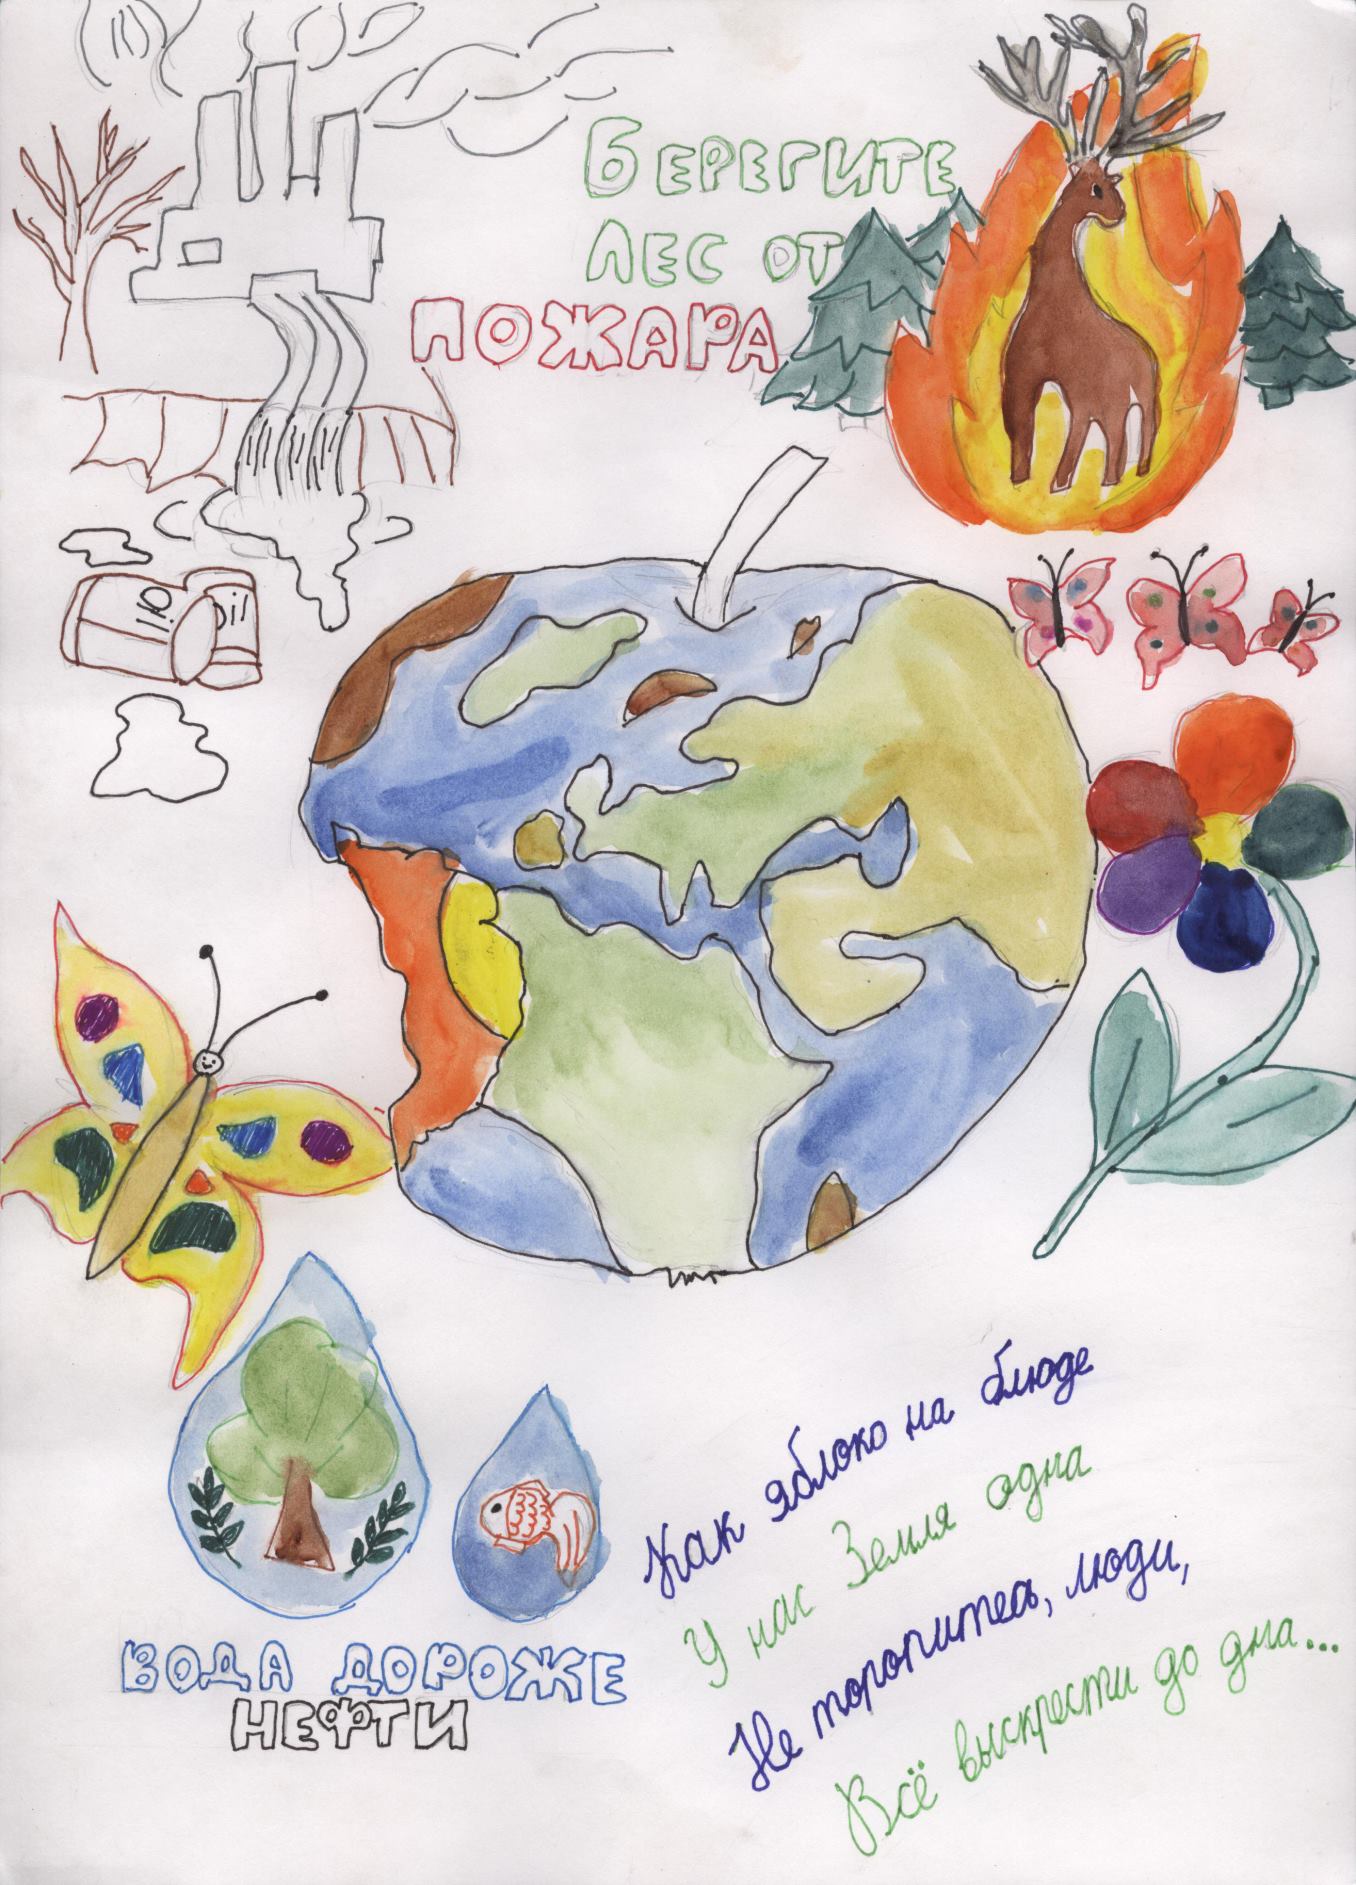 БЕРЕГИТЕ
ЛЕС ОТ
ПОЖАРА
Oil
Oil
ВОДА ДОРОЖЕ
НЕФТИ
Как яблоко на блюде
У нас Земля одна
Не торопитесь, люди,
Всё выскрести до дна...